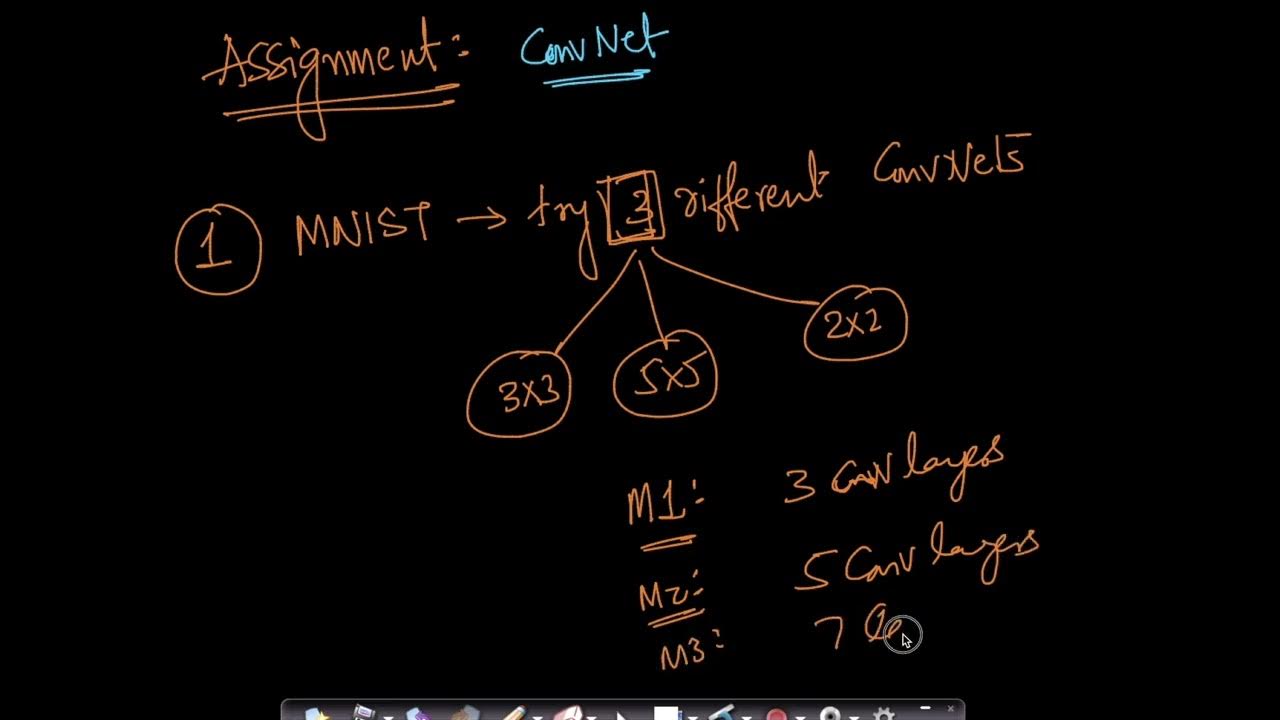 Assignment: ConvNet
1 MNIST → try 3 different ConvNets
3x3 5x5 2x2
M1: 3 Conv layers
M2: 5 Conv layers
M3: 7